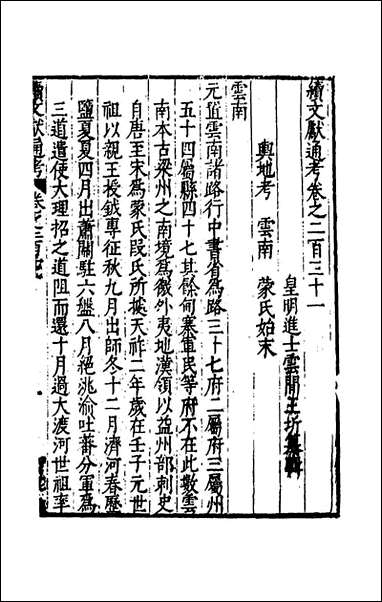 續文獻通考卷之二百三十一
皇明進士雲間王圻纂輯
輿地考 雲南 蒙氏始末
雲南
元置雲南諸路行中書省為路三十七府二屬府三屬州
五十四屬縣四十七其餘甸寨軍民等府不在此數雲
南本古梁州之南境為徼外夷地漢領以益州部刺史
自唐至宋為蒙氏段氏所據天祚二年歲在壬子元世
祖以親王授鉞專征秋九月出師冬十二月濟河春歷
鹽夏夏四月出蕭關駐六盤八月絕洮渝吐蕃分軍為
三道遣使大理招之道阻而還十月過大渡河世祖率
續文獻通考